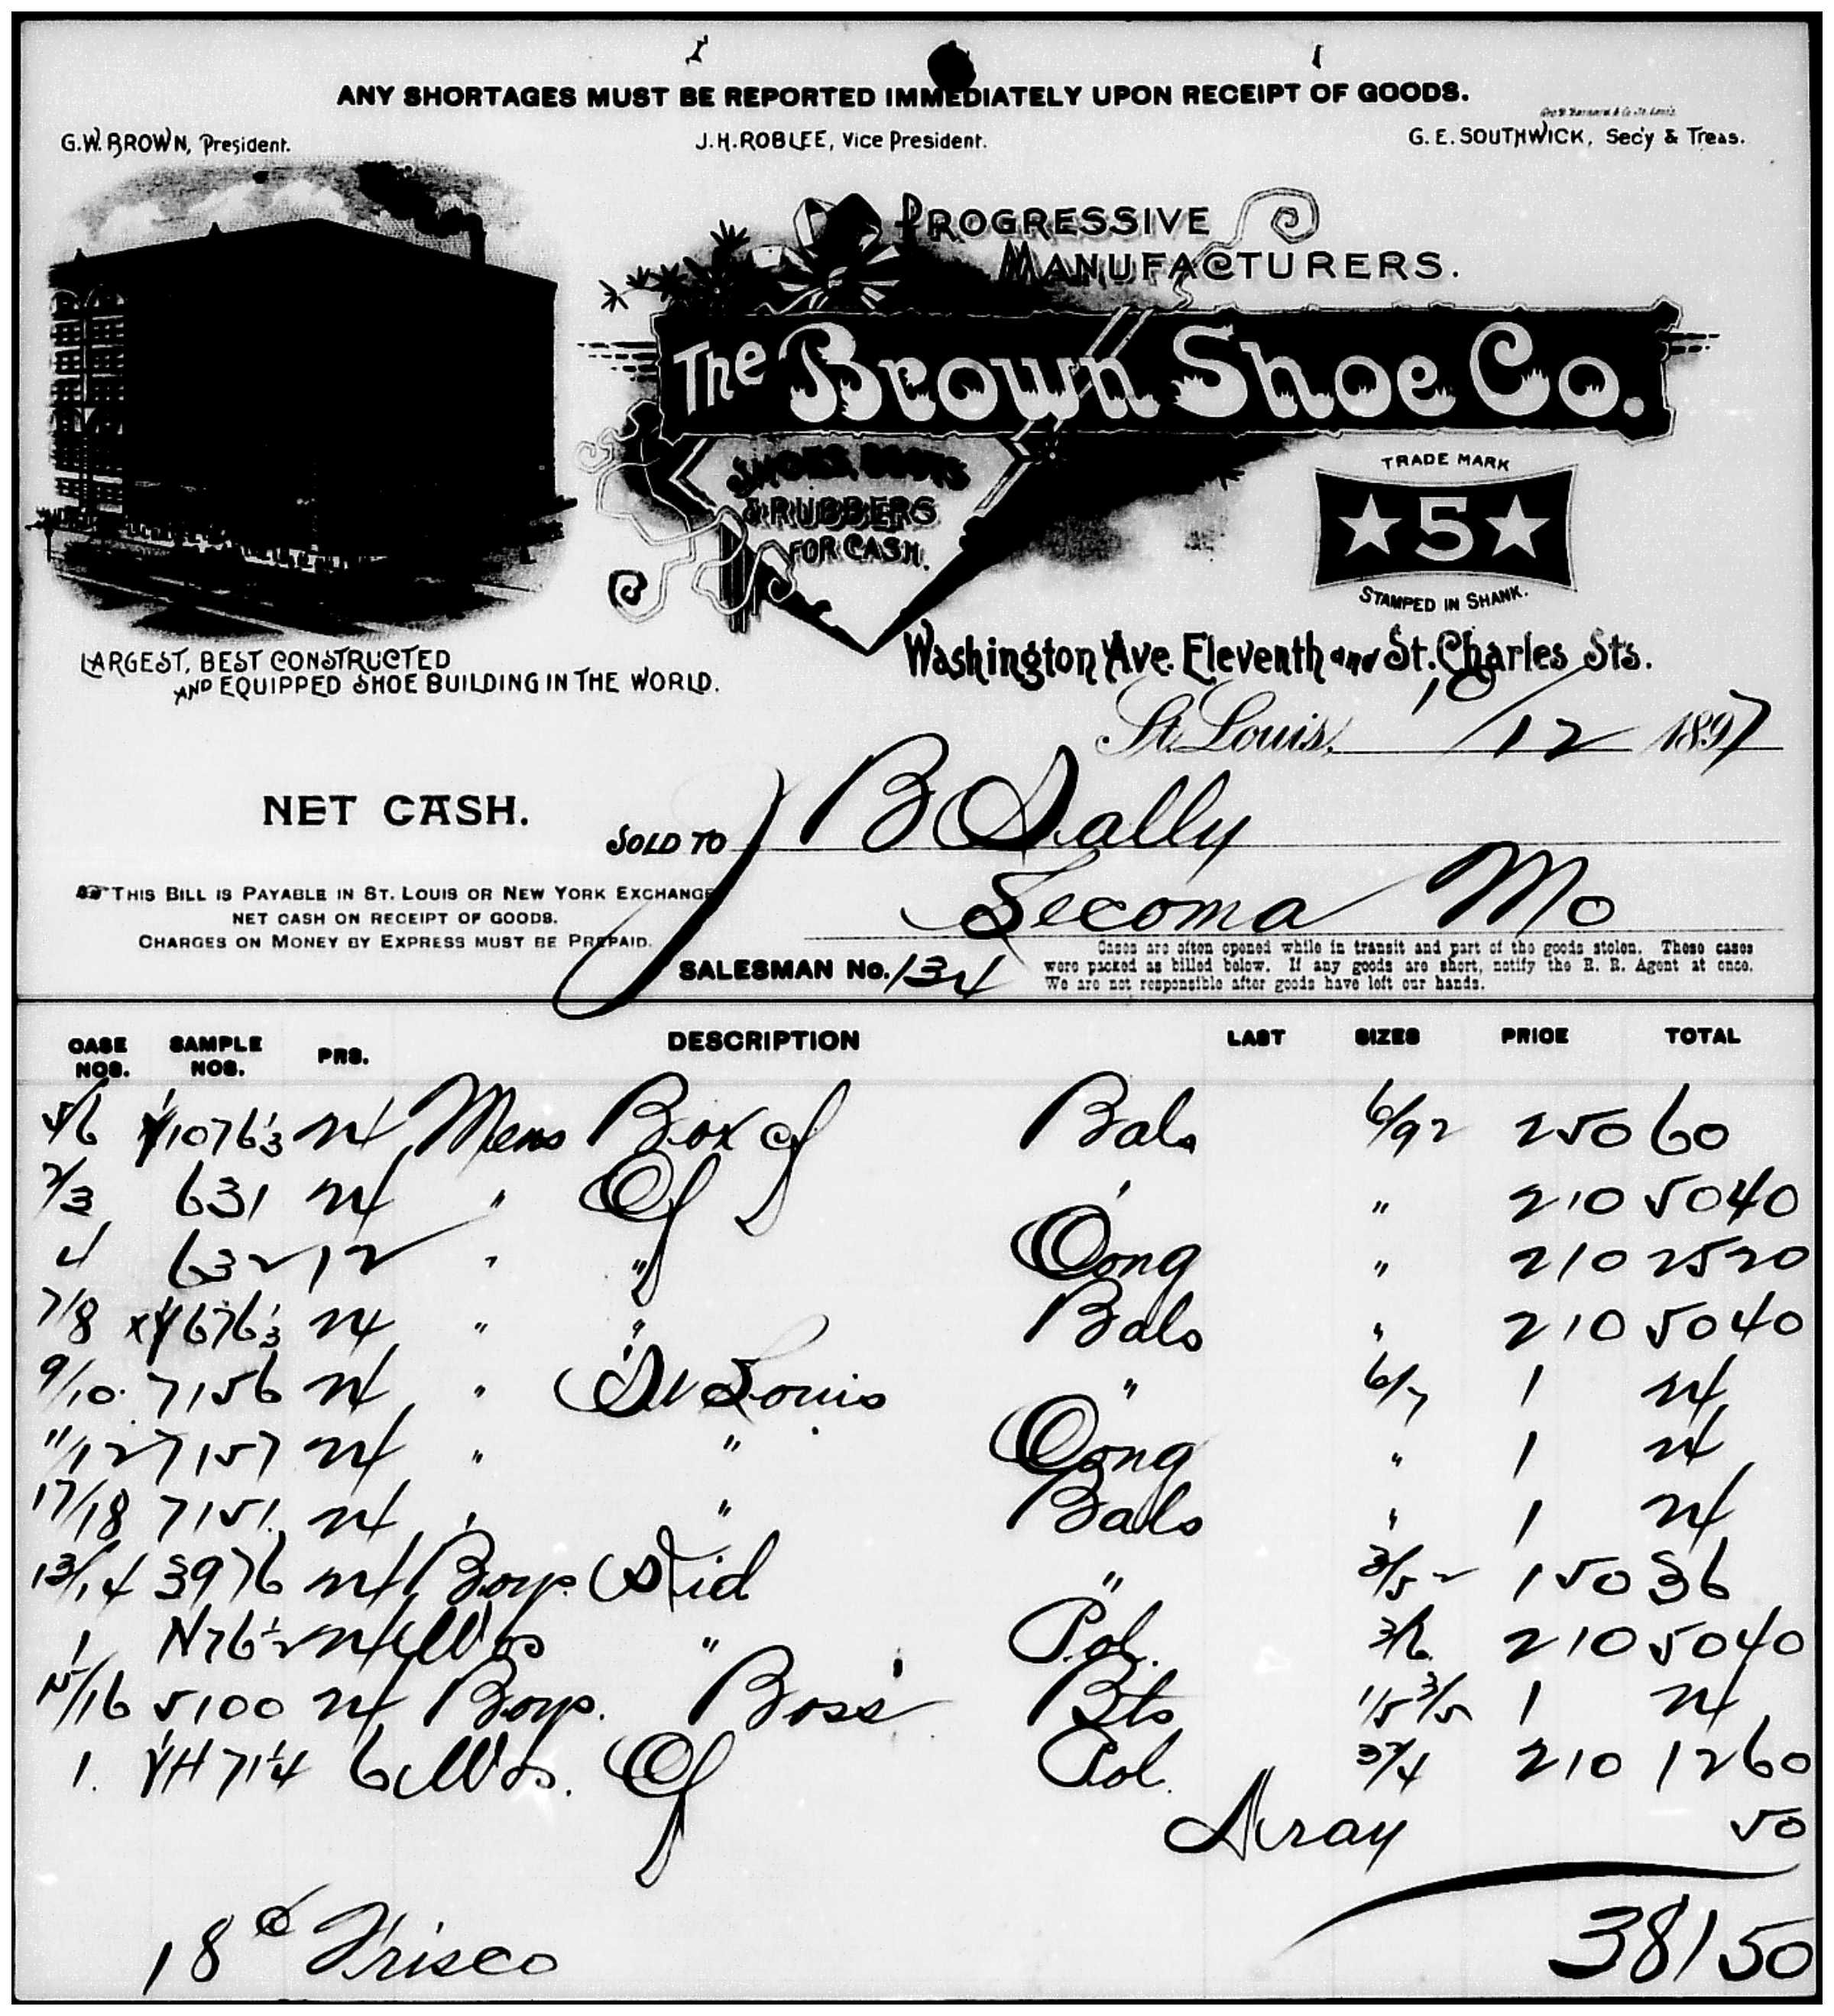 ANY SHORTAGES MUST BE REPORTED IMMEDIATELY UPON RECEIPT OF GOODS.
G.W. BROWN, President. J.H. ROBLEE, Vice President. G.E. SOUTHWICK, Sec'y & Treas.
PROGRESSIVE
MANUFACTURERS.
The Brown Shoe Co.
SHOES, BOOTS
& RUBBERS
FOR CASH.
TRADE MARK
★5★
STAMPED IN SHANK.
LARGEST, BEST CONSTRUCTED
AND EQUIPPED SHOE BUILDING IN THE WORLD.
Washington Ave. Eleventh and St. Charles Sts.
St. Louis, 10/12 1897
NET CASH.
SOLD TO B Sally
Secoma Mo
THIS BILL IS PAYABLE IN ST. LOUIS OR NEW YORK EXCHANGE
NET CASH ON RECEIPT OF GOODS.
CHARGES ON MONEY BY EXPRESS MUST BE PREPAID.
SALESMAN No. 134
Cases are often opened while in transit and part of the goods stolen. These cases
were packed as billed below. If any goods are short, notify the R. R. Agent at once.
We are not responsible after goods have left our hands.
CASE NOS. SAMPLE NOS. PRS. DESCRIPTION LAST SIZES PRICE TOTAL
5/6 1076 24 Mens Box Cf Bals 6/9 2 250 60
2/3 631 24 " Cf " " 210 5040
4 632 12 " " Cong " 210 2520
7/8 676 24 " " Bals " 210 5040
9/10 7156 24 " St Louis " 6/ 1 24
11/12 7157 24 " " Cong " 1 24
17/18 7151 24 " " Bals " 1 24
13/14 3976 24 Boys Kid " 3/5 2 150 36
1 N76½ 24 Wos " Pol. 3/6 210 5040
15/16 5100 24 Boys. Boss Bts 1/5 3/5 1 24
1. H71¼ 6 Wos. Cf Pol. 210 1260
Dray 50
18 c Frisco 38150